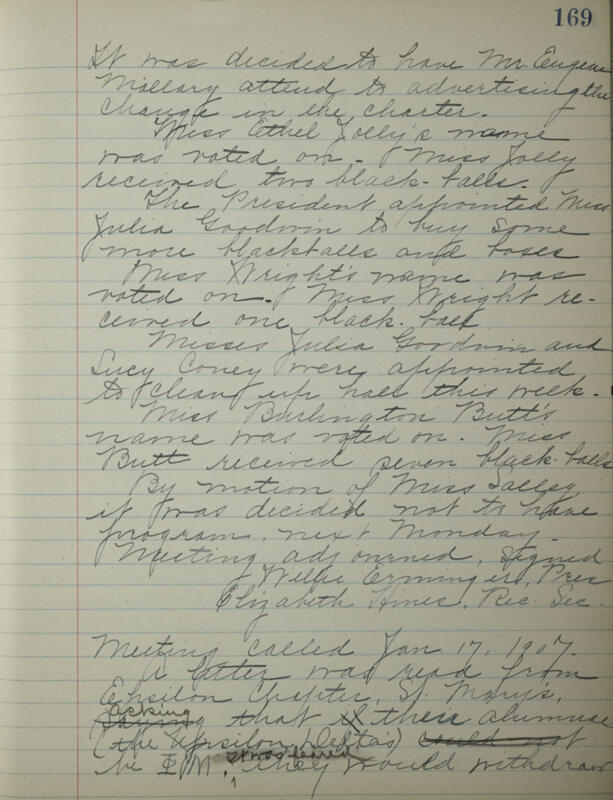 169
It was decided to have Mr. Eugene
Mallary attend to advertising the
change in the charter.
Miss Ethel Jolly's name
was voted on. Miss Jolly
received two black-balls.
The President appointed Miss
Julia Goodwin to buy some
more blackballs and boxes
Miss Wright's name was
voted on. Miss Wright re-
ceived one black-ball.
Misses Julia Goodwin and
Lucy Coney were appointed
to clean up hall this week.
Miss Burlington Butt's
name was voted on. Miss
Butt received seven black-balls
By motion of Miss Salley,
it was decided not to have
program, next Monday.
Meeting adjourned, signed
Willie Erminger, Pres
Elizabeth Hines, Rec. Sec.
Meeting called Jan 17, 1907.
A letter was read from
Epsilon Chapter, St. Mary's,
asking
that if their alumnae
(the Upsilon Delta's) could not
be Φ M, it was feared they would withdraw